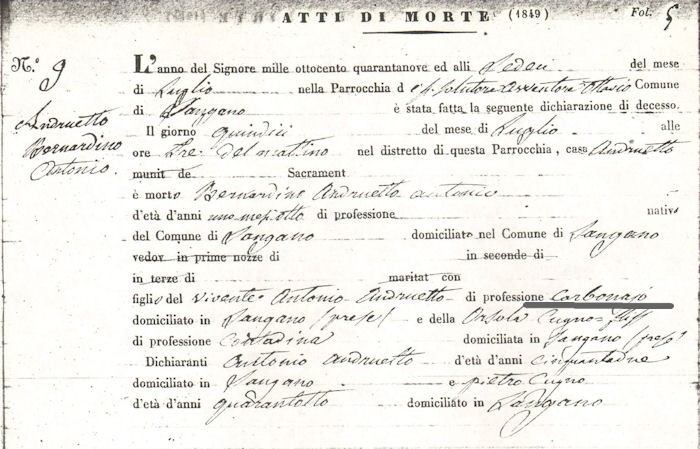 ATTI DI MORTE (1849) Fol. 5
N.° 9
Andruetto
Bernardino
Antonio.
L'anno del Signore mille ottocento quarantanove ed alli Sedeci del mese
di Luglio nella Parrocchia d Comune
di Sangano è stata fatta la seguente dichiarazione di decesso.
Il giorno quindici del mese di Luglio alle
ore tre del mattino nel distretto di questa Parrocchia, casa Andruetto
munit de Sacrament
è morto Bernardino Andruetto Antonio
d'età d'anni uno mesi otto di professione nativo
del Comune di Sangano domiciliato nel Comune di Sangano
vedov in prime nozze di in seconde di
in terze di maritat con
figlio del vivente Antonio Andruetto di professione Carbonajo
domiciliato in Sangano (prese) e della Orsola Cugno
di professione Contadina domiciliata in Sangano (prese)
Dichiaranti Antonio Andruetto d'età d'anni Cinquantadue
domiciliato in Sangano e pietro Cugno
d'età d'anni quarantotto domiciliato in Sangano